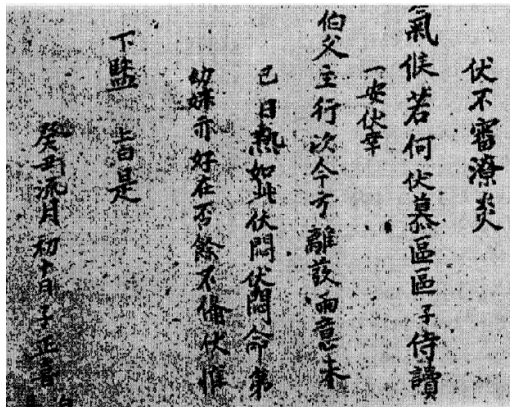 伏不審潦炎
氣候若何伏慕區區子侍讀
一安伏幸
伯父主行次今方離設雨意未
已日熱如此伏悶伏悶命弟
幼妹亦好在否餘不備伏惟
下監 上白是
癸丑流月初十日子正